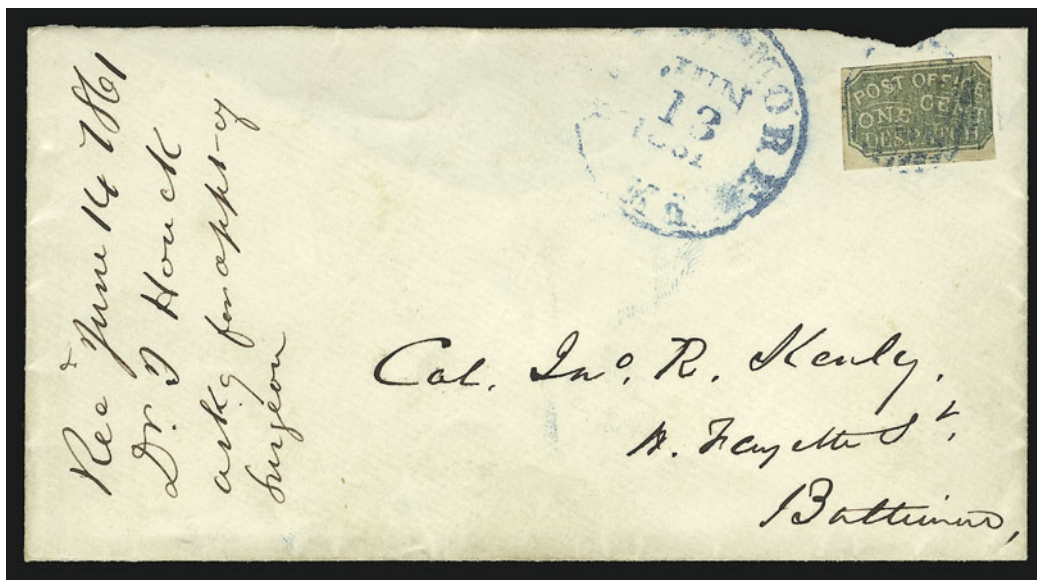 Rec^d June 14 1861
Dr. F Houck
ask^g for app^t as
surgeon
BALTIMORE
JUN
13
1861
MD
POST OFFICE
ONE CENT
DESPATCH
Col. Jn^o. R. Kenly,
W. Fayette S^t,
Baltimore,